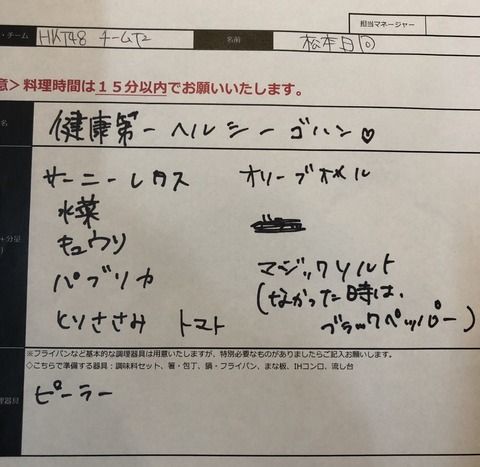 担当マネージャー
・チーム HKT48 チームTⅡ 名前 松本日向
意＞料理時間は１５分以内でお願いいたします。
名 健康第一ヘルシーゴハン♡
サーニーレタス オリーブオイル
水菜
＋分量
キュウリ
パプリカ マジックソルト
(なかった時は、
とりささみ トマト ブラックペッパー)
※フライパンなど基本的な調理器具は用意いたしますが、特別必要なものがありましたらご記入お願いします。
◇こちらで準備する器具：調味料セット、箸・包丁、鍋・フライパン、まな板、IHコンロ、流し台
理器具 ピーラー